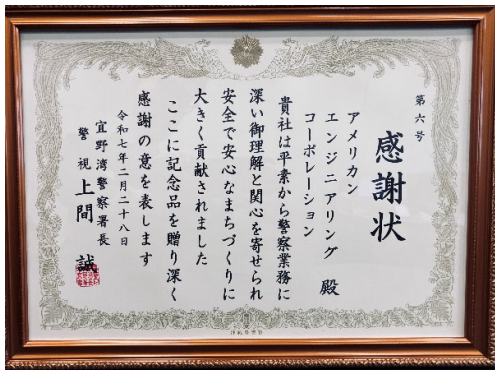 第六号
感謝状
アメリカン
エンジニアリング
コーポレーション
殿
貴社は平素から警察業務に
深い御理解と関心を寄せられ
安全で安心なまちづくりに
大きく貢献されました
ここに記念品を贈り深く
感謝の意を表します
令和七年二月二十八日
宜野湾警察署長
警視 上間 誠